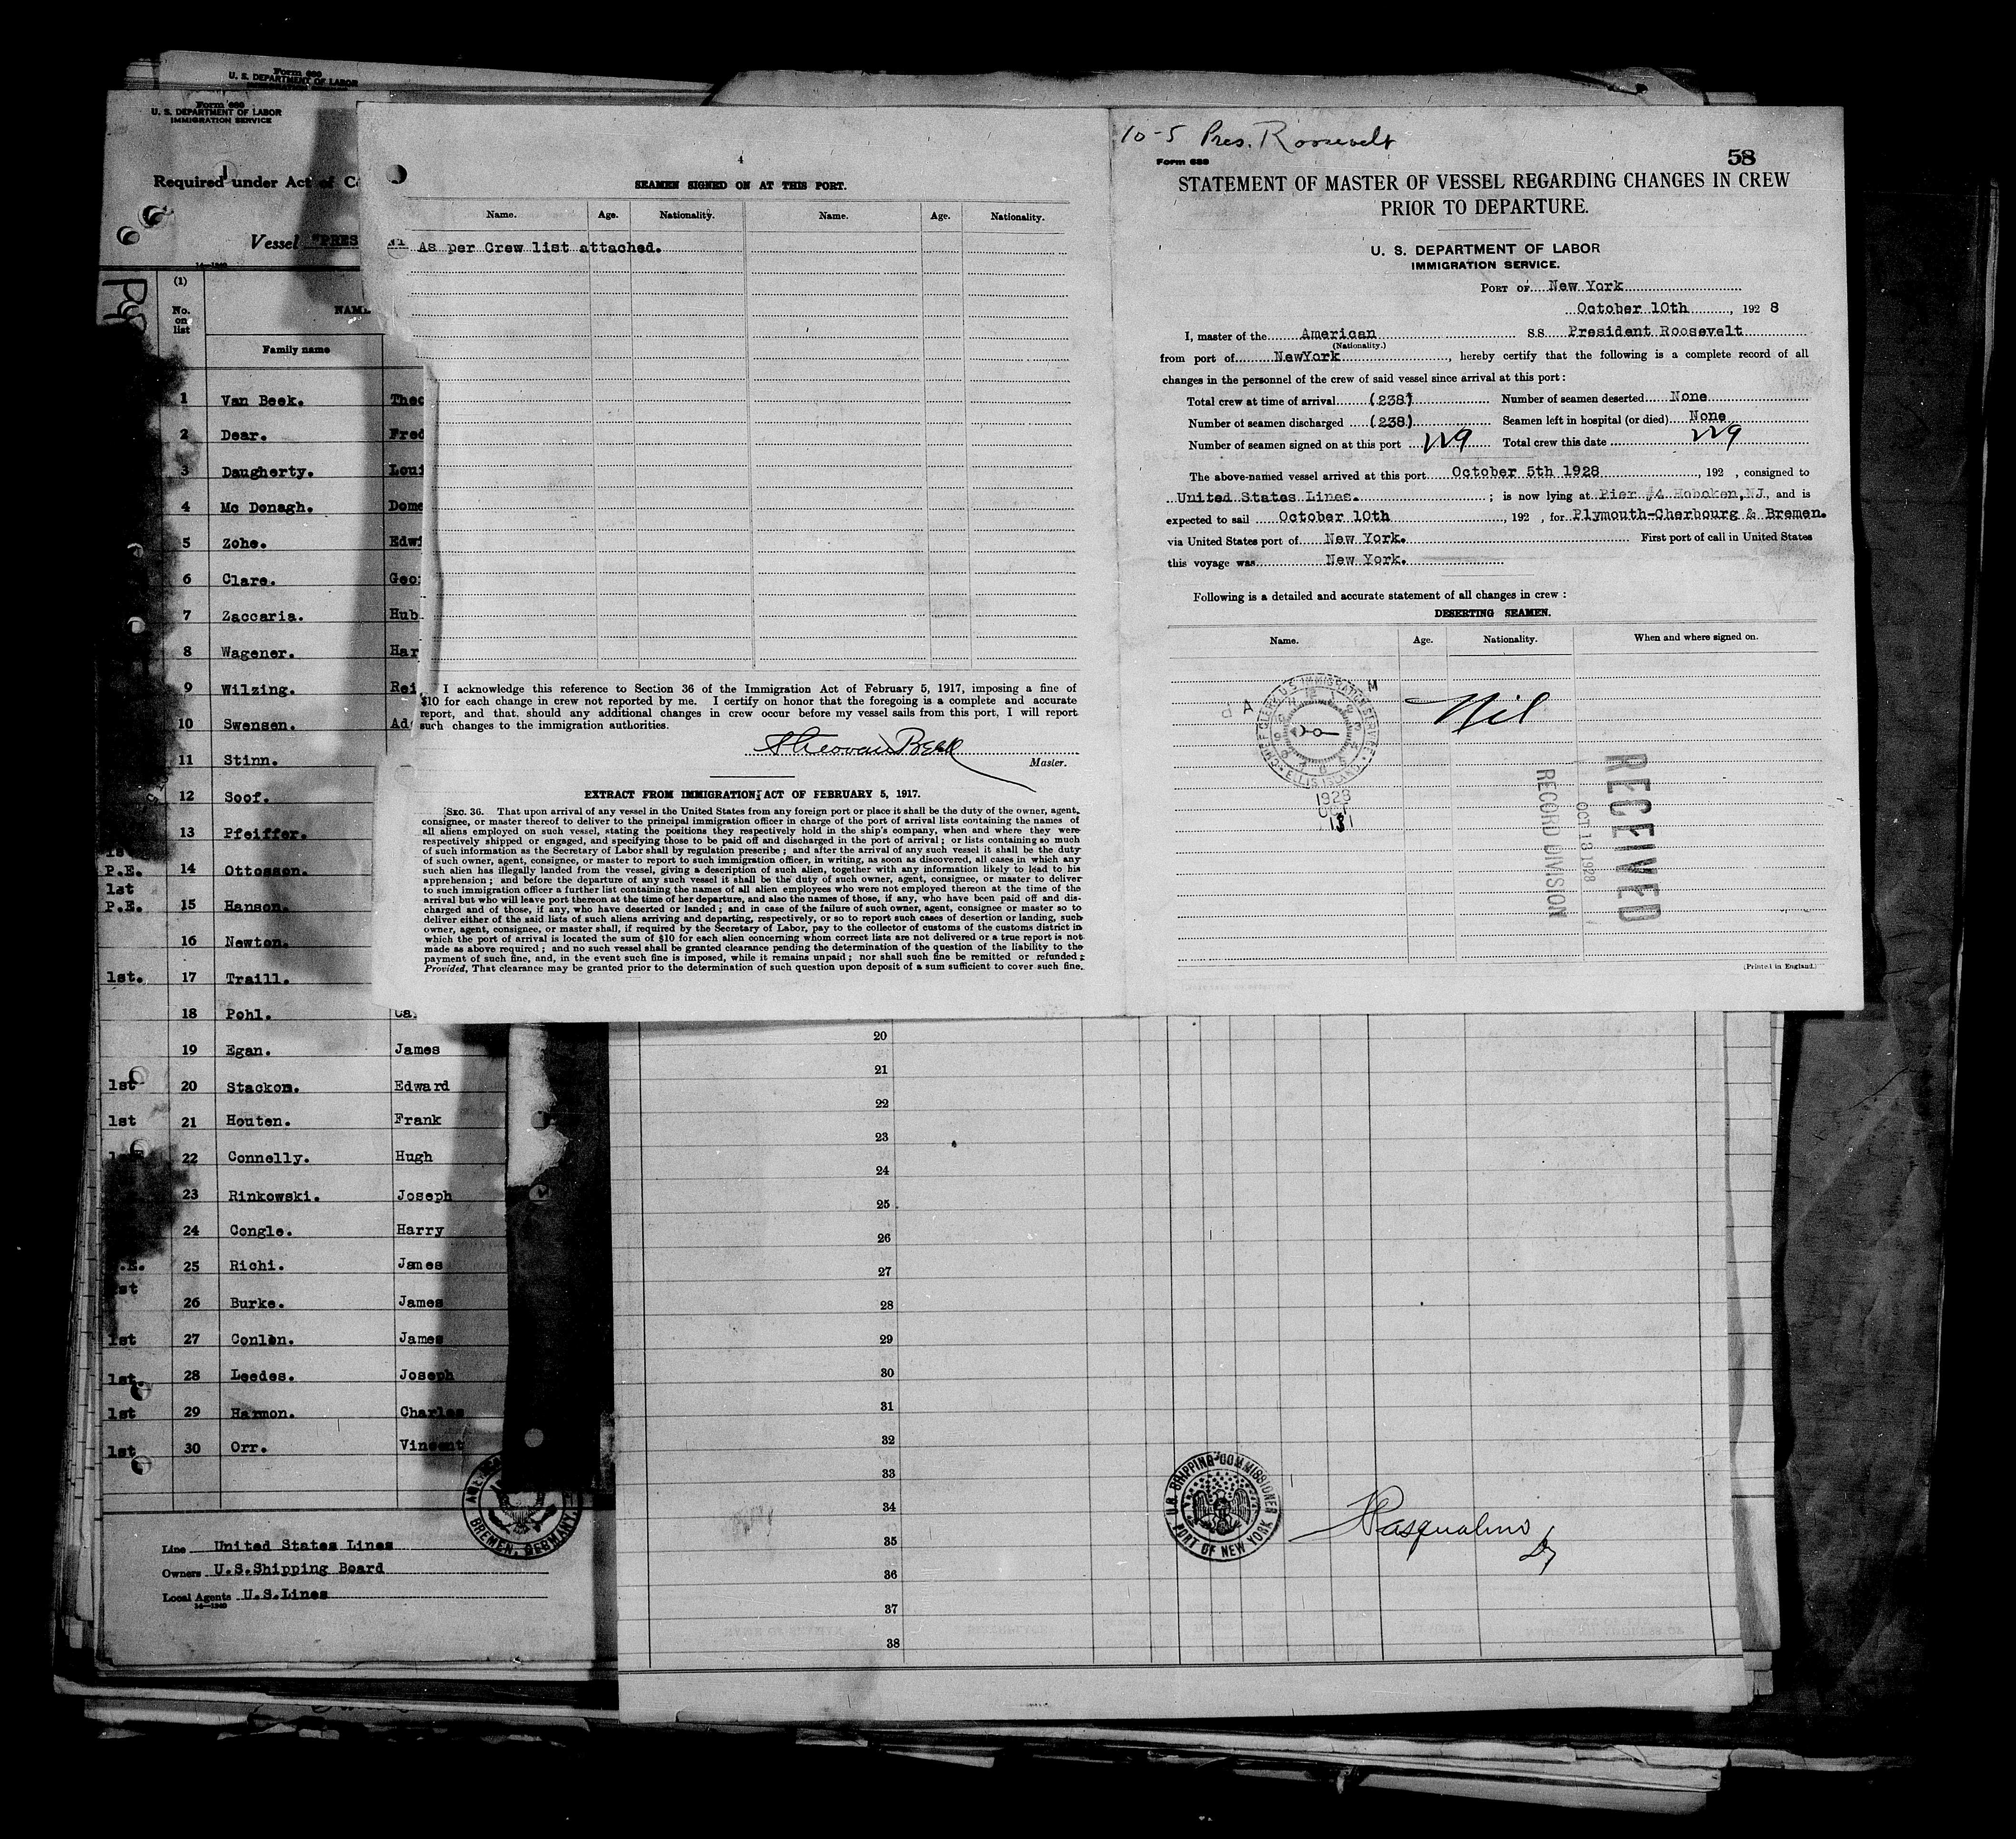 Form 689
U. S. DEPARTMENT OF LABOR
Form 689
U. S. DEPARTMENT OF LABOR
IMMIGRATION SERVICE
Required under Act of
Vessel "PRES
(1)
No. on list
NAME
Family name
1 Van Beek. Theo
2 Dear. Fred
3 Daugherty. Loui
4 Mc Donagh. Dome
5 Zohe. Edwi
6 Clare. Geo
7 Zaccaria. Hub
8 Wagener. Har
9 Wilzing. Rei
10 Swensen. Ad
11 Stinn.
12 Soof.
13 Pfeiffer.
P.E. 14 Ottosson.
1st
P.E. 15 Hanson.
16 Newton.
1st. 17 Traill.
18 Pohl. Ca
19 Egan. James
1st 20 Stackon. Edward
1st 21 Houten. Frank
22 Connelly. Hugh
23 Rinkowski. Joseph
24 Congle. Harry
25 Richi. James
26 Burke. James
1st 27 Conlon. James
1st. 28 Leedes. Joseph
1st 29 Harmon. Charles
1st 30 Orr. Vincent
Line United States Lines
Owners U.S.Shipping Board
Local Agents U.S.Lines
BREMEN, GERMANY.
4
SEAMEN SIGNED ON AT THIS PORT.
Name. Age. Nationality. Name. Age. Nationality.
As per Crew list attached.
I acknowledge this reference to Section 36 of the Immigration Act of February 5, 1917, imposing a fine of
$10 for each change in crew not reported by me. I certify on honor that the foregoing is a complete and accurate
report, and that, should any additional changes in crew occur before my vessel sails from this port, I will report
such changes to the immigration authorities.
Theo van Beek
Master.
EXTRACT FROM IMMIGRATION ACT OF FEBRUARY 5, 1917.
SEC. 36. That upon arrival of any vessel in the United States from any foreign port or place it shall be the duty of the owner, agent,
consignee, or master thereof to deliver to the principal immigration officer in charge of the port of arrival lists containing the names of
all aliens employed on such vessel, stating the positions they respectively hold in the ship's company, when and where they were
respectively shipped or engaged, and specifying those to be paid off and discharged in the port of arrival; or lists containing so much
of such information as the Secretary of Labor shall by regulation prescribe; and after the arrival of any such vessel it shall be the duty
of such owner, agent, consignee, or master to report to such immigration officer, in writing, as soon as discovered, all cases in which any
such alien has illegally landed from the vessel, giving a description of such alien, together with any information likely to lead to his
apprehension; and before the departure of any such vessel it shall be the duty of such owner, agent, consignee, or master to deliver
to such immigration officer a further list containing the names of all alien employees who were not employed thereon at the time of the
arrival but who will leave port thereon at the time of her departure, and also the names of those, if any, who have been paid off and dis-
charged and of those, if any, who have deserted or landed; and in case of the failure of such owner, agent, consignee or master so to
deliver either of the said lists of such aliens arriving and departing, respectively, or so to report such cases of desertion or landing, such
owner, agent, consignee, or master shall, if required by the Secretary of Labor, pay to the collector of customs of the customs district in
which the port of arrival is located the sum of $10 for each alien concerning whom correct lists are not delivered or a true report is not
made as above required; and no such vessel shall be granted clearance pending the determination of the question of the liability to the
payment of such fine, and, in the event such fine is imposed, while it remains unpaid; nor shall such fine be remitted or refunded:
Provided, That clearance may be granted prior to the determination of such question upon deposit of a sum sufficient to cover such fine.
10-5 Pres. Roosevelt
Form 689
58
STATEMENT OF MASTER OF VESSEL REGARDING CHANGES IN CREW
PRIOR TO DEPARTURE.
U. S. DEPARTMENT OF LABOR
IMMIGRATION SERVICE.
PORT OF New York
October 10th, 1928
I, master of the American S.S. President Roosevelt
(Nationality.)
from port of NewYork, hereby certify that the following is a complete record of all
changes in the personnel of the crew of said vessel since arrival at this port:
Total crew at time of arrival (238) Number of seamen deserted None
Number of seamen discharged (238) Seamen left in hospital (or died) None
Number of seamen signed on at this port 229 Total crew this date 229
The above-named vessel arrived at this port October 5th 1928, 192 , consigned to
United States Lines. ; is now lying at Pier #4 Hoboken,NJ, and is
expected to sail October 10th, 192 , for Plymouth-Cherbourg & Bremen.
via United States port of New York. First port of call in United States
this voyage was New York.
Following is a detailed and accurate statement of all changes in crew:
DESERTING SEAMEN.
Name. Age. Nationality. When and where signed on.
Nil
CHIEF CLERK U.S. IMMIGRATION SERVICE
ELLIS ISLAND
A M
1928
OCT
13
RECEIVED
OCT 13 1928
RECORD DIVISION
(Printed in England.)
20
21
22
23
24
25
26
27
28
29
30
31
32
33
34
35
36
37
38
U.S. SHIPPING COMMISSIONER
PORT OF NEW YORK
Pasqualino